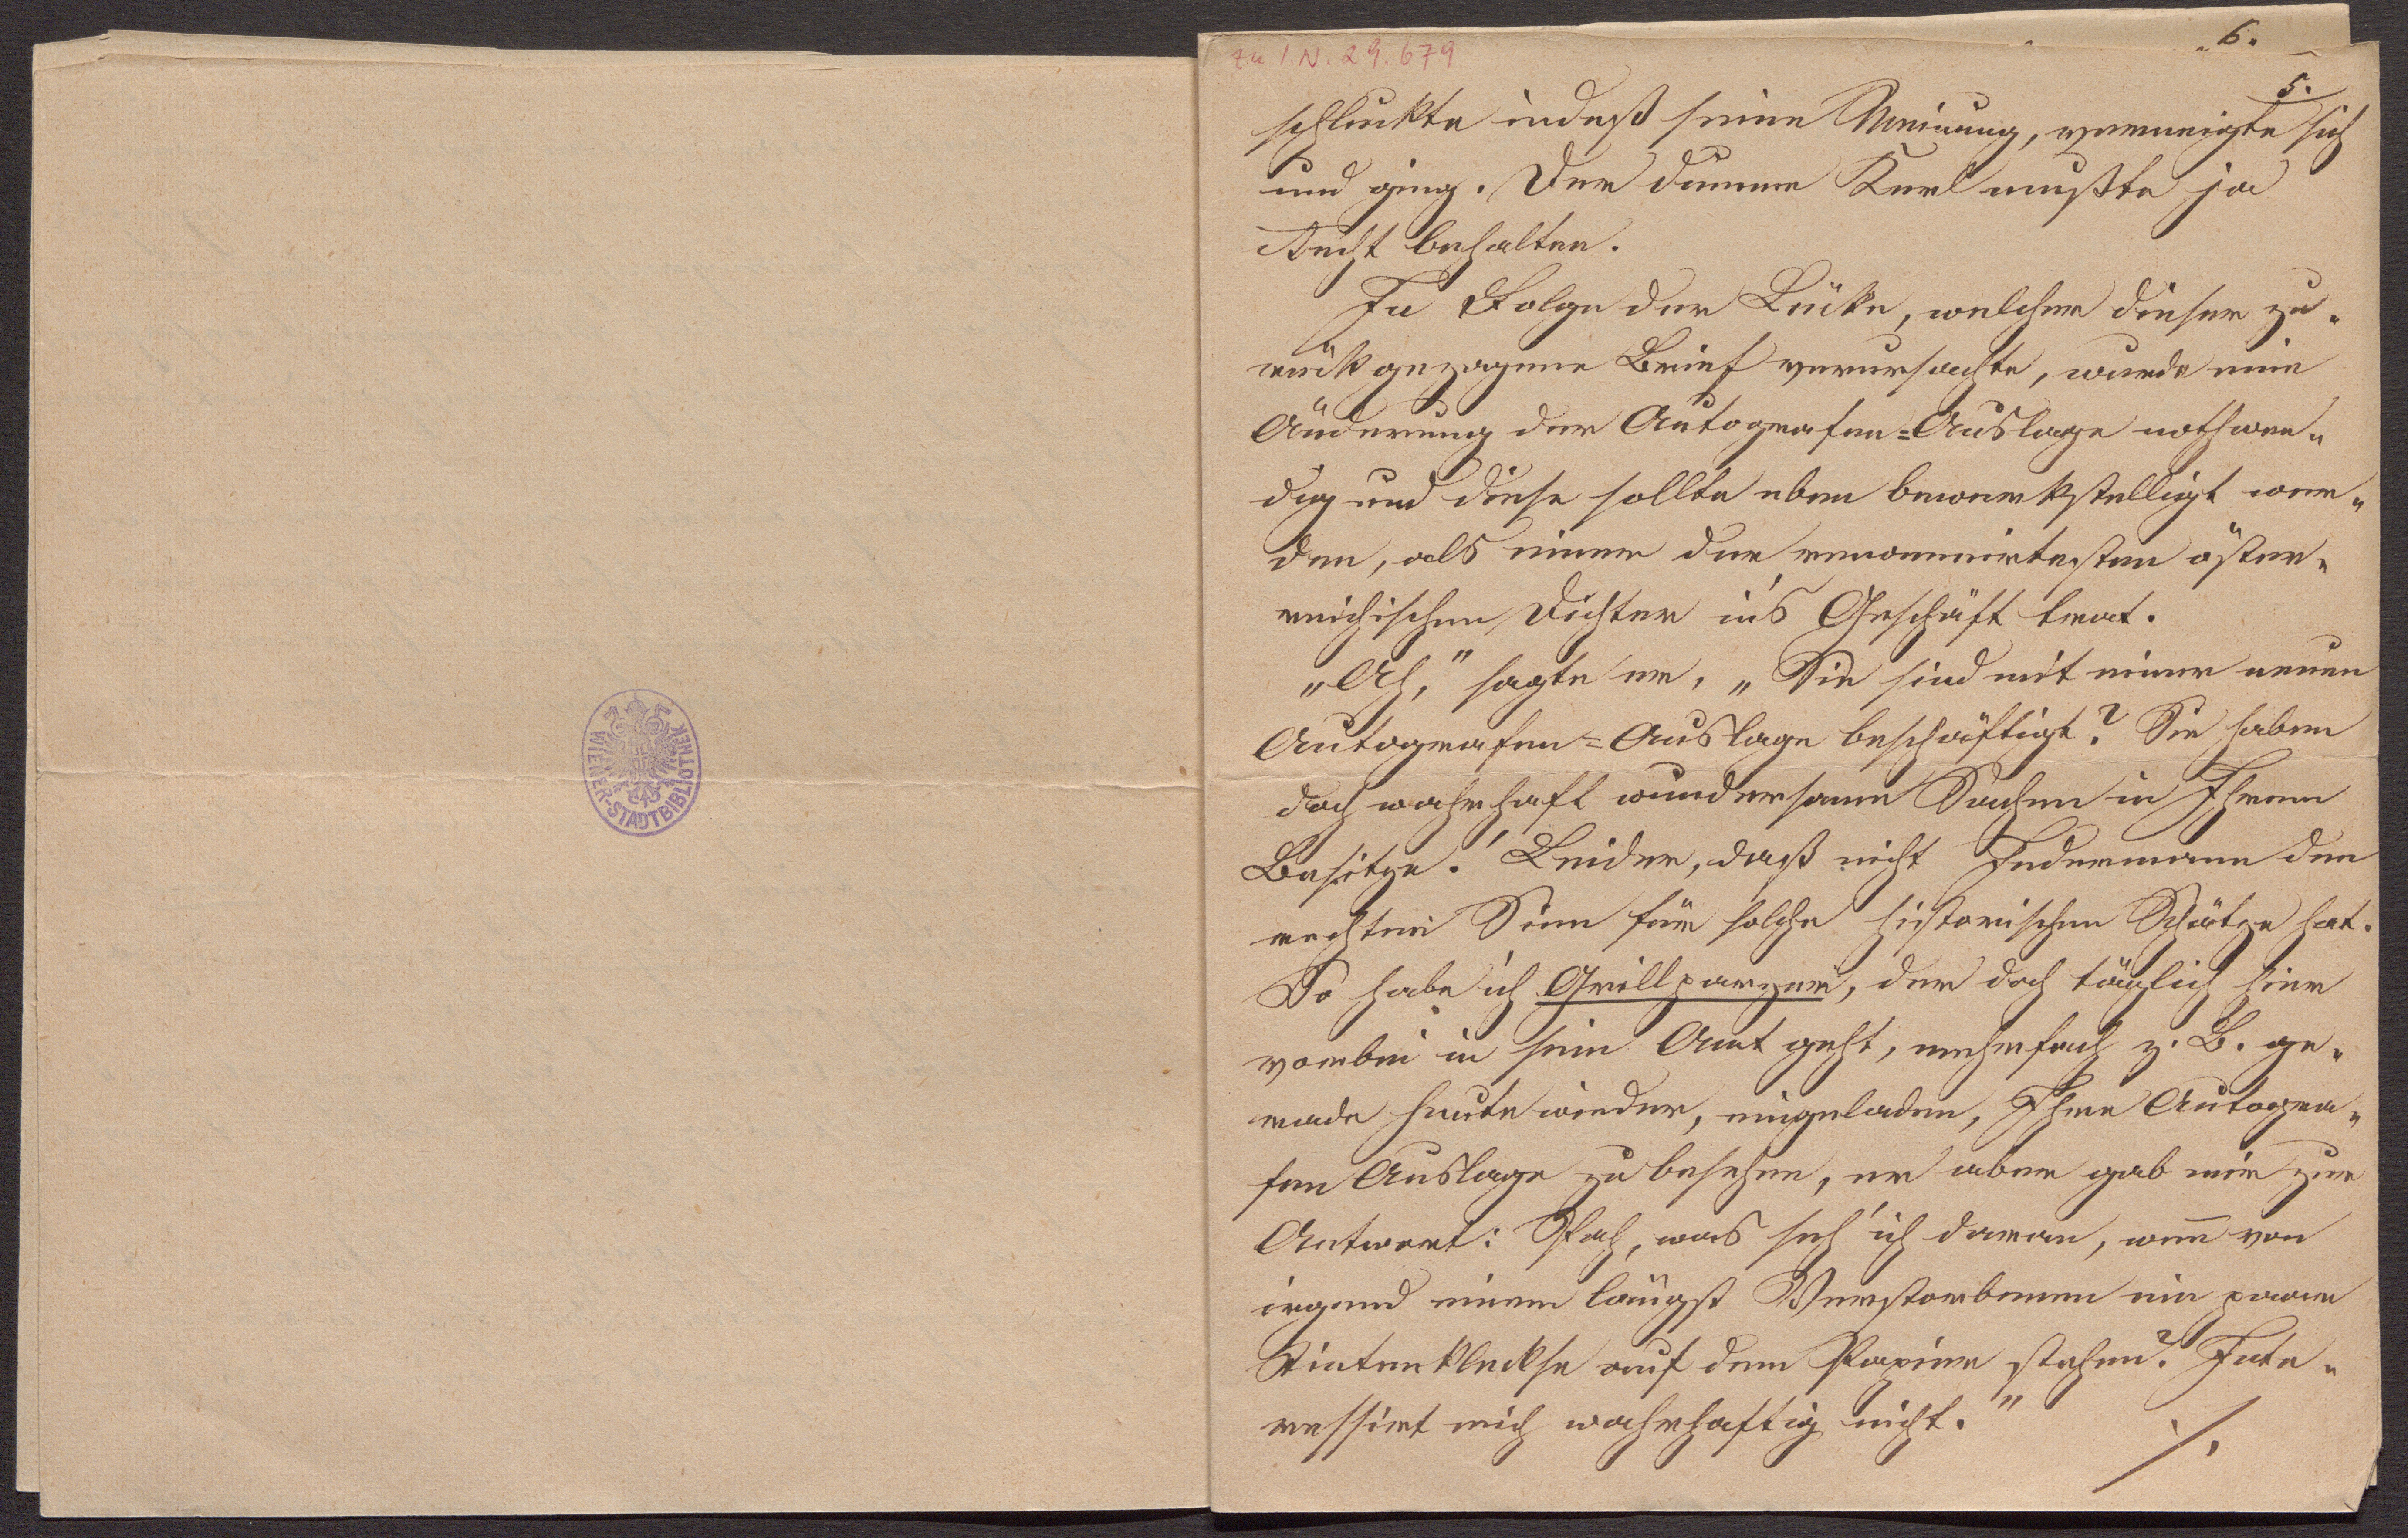 WIENER-STADTBIBLIOTHEK
zu I.N. 29.679
6.
5.
schluckte indeß seine Meinung, verneigte sich
und ging. Der dumme Kerl mußte ja
Recht behalten.
In Folge der Lücke, welcher dieser zu-
rückgezogene Brief verursachte, wurde eine
Änderung der Autografen=Auslage nothwen-
dig und diese sollte eben bewerkstelligt wer-
den, als einer der renommirtesten öster-
reichischen Dichter in's Geschäft trat.
„Ah," sagte er, „Sie sind mit einer neuen
Autografen=Auslage beschäftigt? Sie haben
doch wahrhaft wundersame Sachen in Ihrem
Besitze! Leider, daß nicht Jedermann den
rechten Sinn für solche historischen Schätze hat.
So habe ich Grillparzer, der doch täglich hier
vorbei in sein Amt geht, mehrfach z. B. ge-
rade heute wieder, eingeladen, Ihre Autogra-
fen Auslage zu besehen, er aber gab mir zur
Antwort: Pah, was seh' ich daran, wenn von
irgend einem längst Verstorbenen ein paar
Tintenkleckse auf dem Papier stehen? Inte-
ressirt mich wahrhaftig nicht."
./.